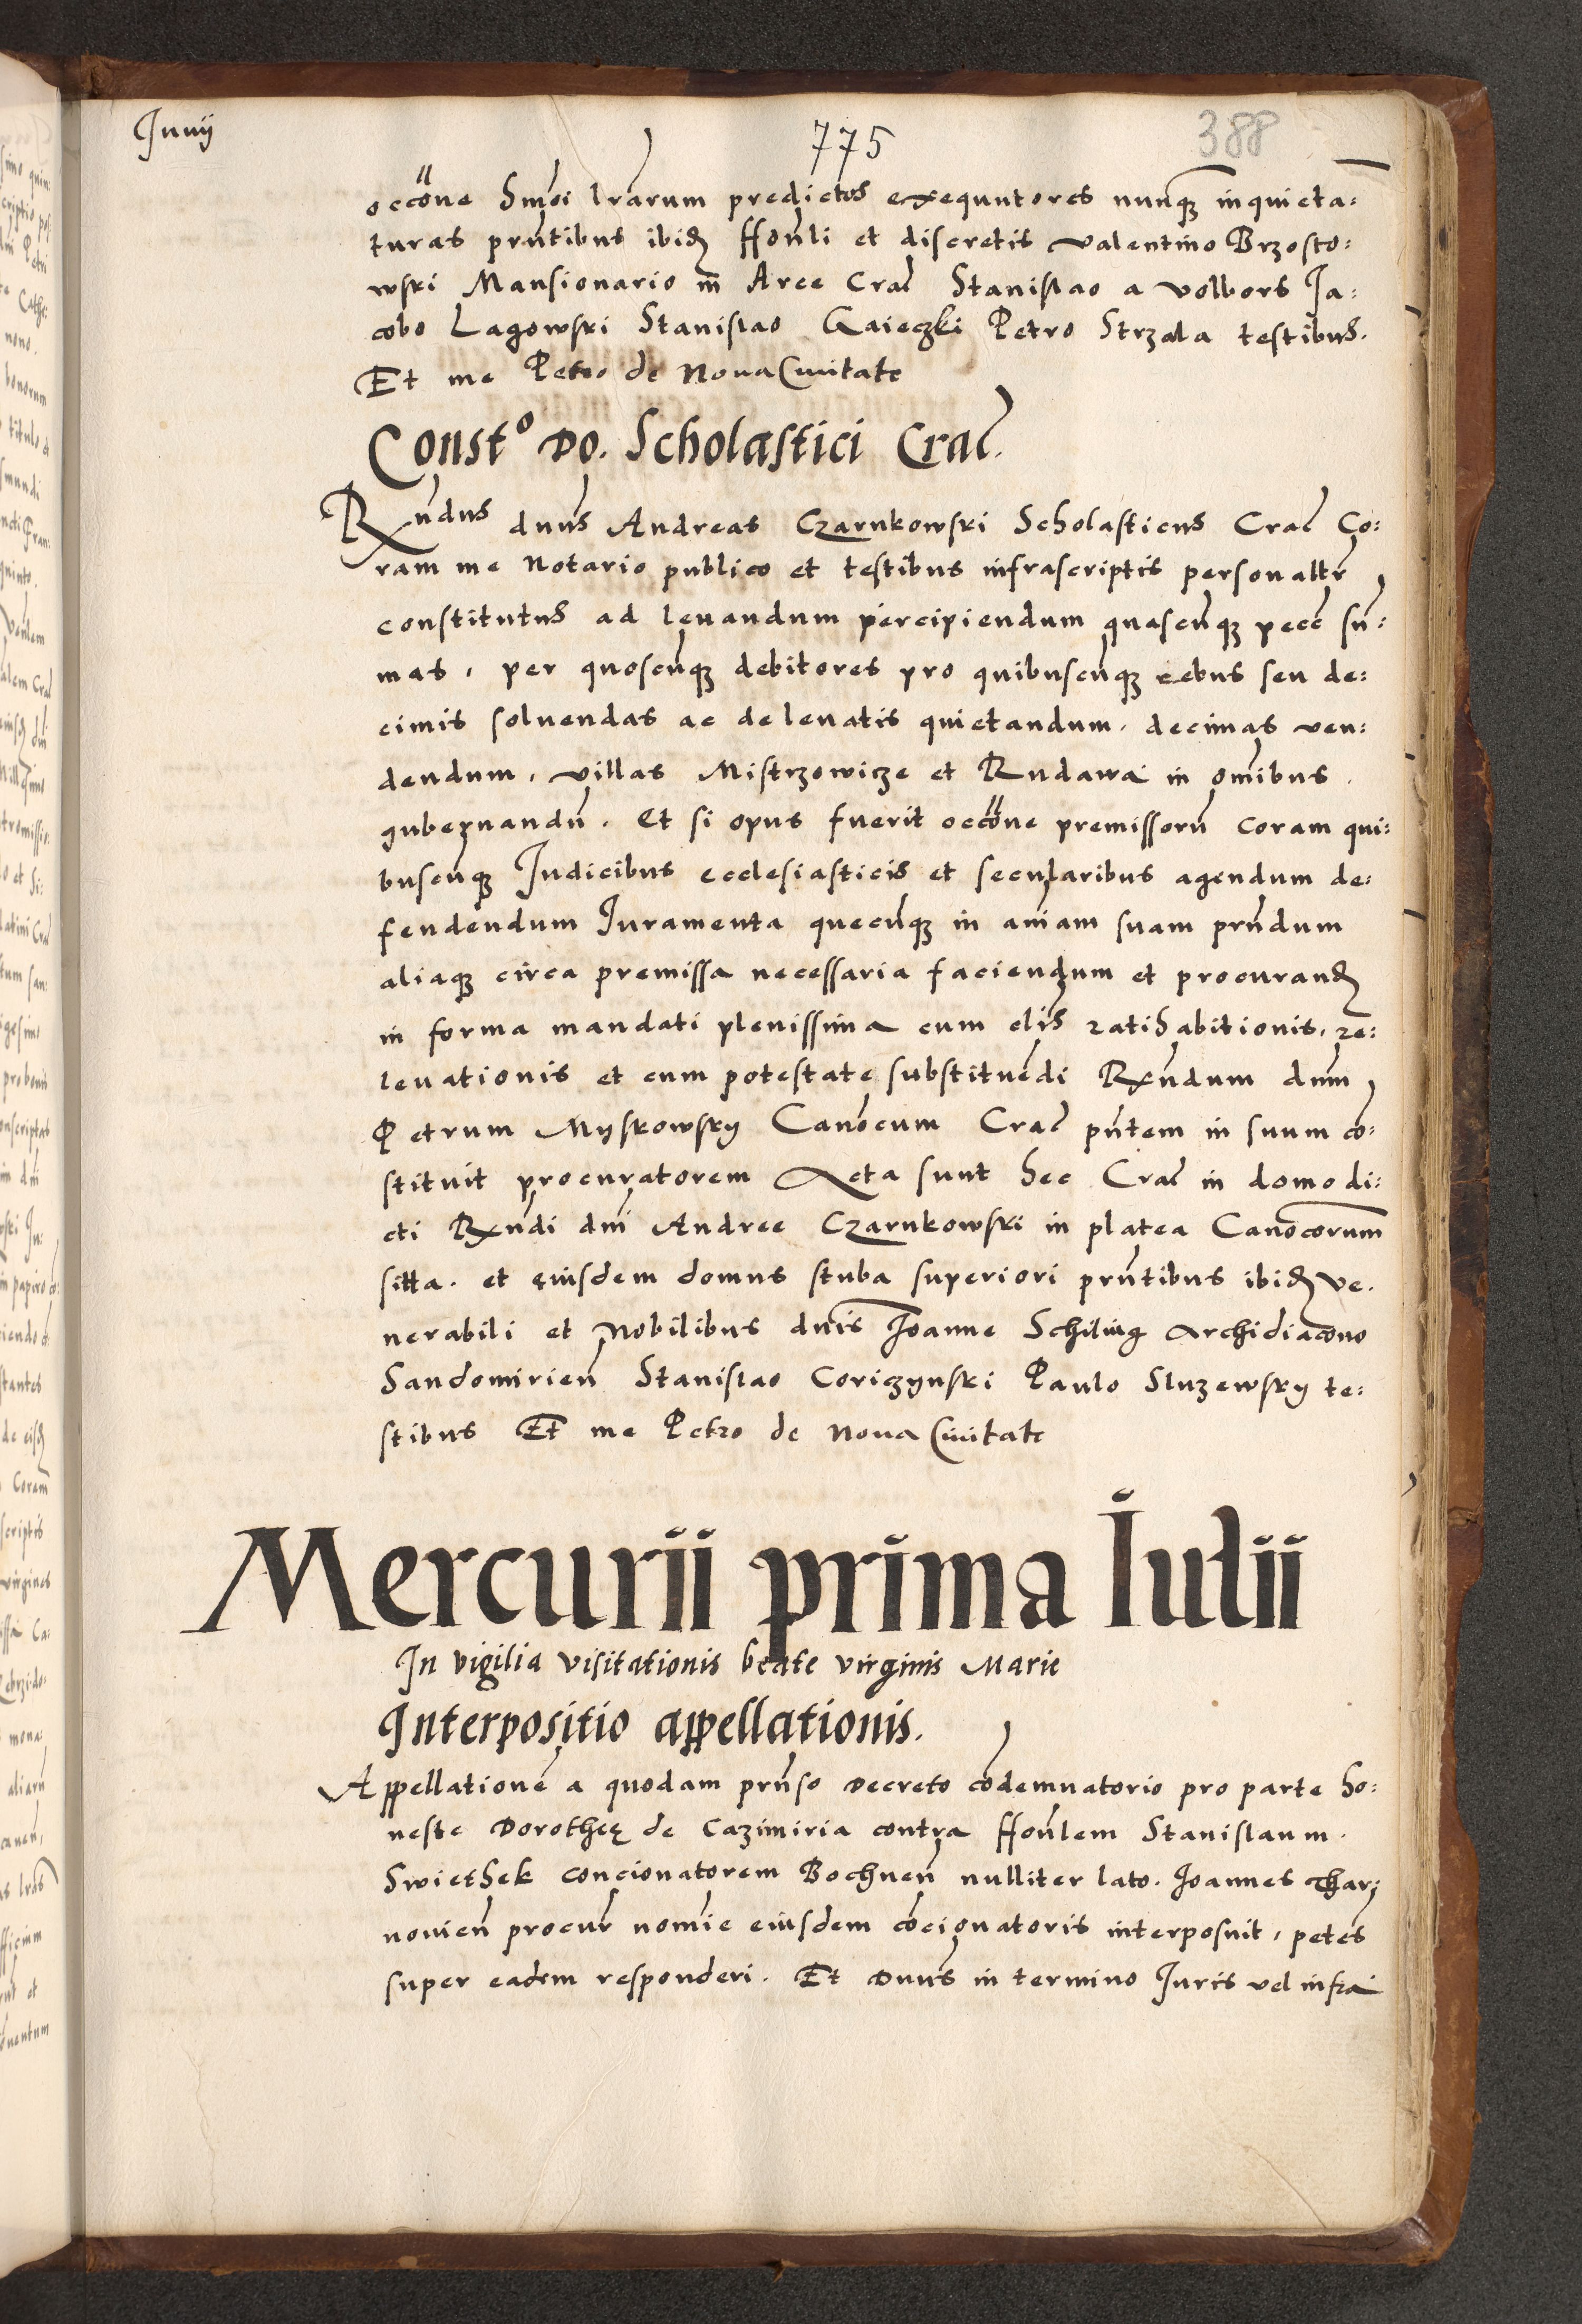 Junij
775
388
occōne Sm̄oi lr̄arum predictos exequutores nunq̄ꝫ inquieta⸗
turas prn̄tibus ibidꝫ Hon̄li et discretis Valentino Brzosto⸗
wski Mansionario in Arce Crac̄ Stanislao a Volbors Ja⸗
cobo Lagowski Stanislao Gaieczki Petro Strzala testibus.
Et me Petro de Noua Ciuitate
Const° Do. Scholastici Crac̄.
Rn̄dus dnūs Andreas Czarnkowski Scholasticus Crac̄ Co⸗
ram me Notario publico et testibus infrascriptis personaltr̄
constitutus ad leuandum percipiendum quascūqꝫ pecc̄ sū⸗
mas, per quoscūqꝫ debitores pro quibuscūqꝫ rebus seu de⸗
cimis soluendas ac de leuatis quietandum. decimas ven⸗
dendum, villas Mistrzowicze et Rudawa in om̄ibus
gubernandū. Et si opus fuerit occōne premissorū coram qui⸗
buscūqꝫ Judicibus ecclesiasticis et secularibus agendum de⸗
fendendum Juramenta quecūqꝫ in aīam suam prn̄dum
aliaqꝫ circa premissa necessaria faciendum et procurandꝫ
in forma mandati plenissima cum cl̄is ratihabitionis, re⸗
leuationis et cum potestate substituēdi Rn̄dum dnm̄
Petrum Myskowsky Canōcum Crac̄ pn̄tem in suum cō⸗
stituit procuratorem Acta sunt hec Crac̄ in domo di⸗
cti Rn̄di dnī Andree Czarnkowski in platea Canōcorum
sitta. et eiusdem domus stuba superiori prn̄tibus ibidꝫ ve.
nerabili et Nobilibus dnīs Joanne Schiling Archidiacono
Sandomirien̄ Stanislao Coriczynski Paulo Sluzewsky te⸗
stibus Et me Petro de Noua Ciuitate
Mercurii prima Iulii
In vigilia visitationis beate virginis Marie
Interpositio appellationis.
Appellationē a quodam prn̄so Decreto cōdemnatorio pro parte ho⸗
neste Dorotheę de Cazimiria contra Hon̄lem Stanislaum.
Swiethek concionatorem Bochnen̄ nulliter lato. Joannes Thar⸗
nouien̄ procur̄ nomīe eiusdem cōcionatoris interposuit, petēs
super eadem responderi. Et Dnūs in termino Juris vel infra